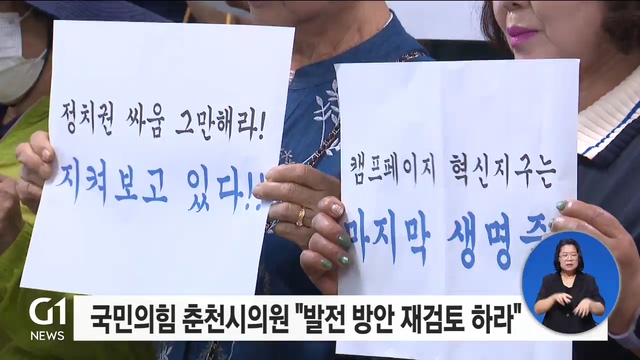 정치권 싸움 그만해라!
지켜보고 있다!!
캠프페이지 혁신지구는
마지막 생명주
G1
NEWS
국민의힘 춘천시의원 "발전 방안 재검토 하라"